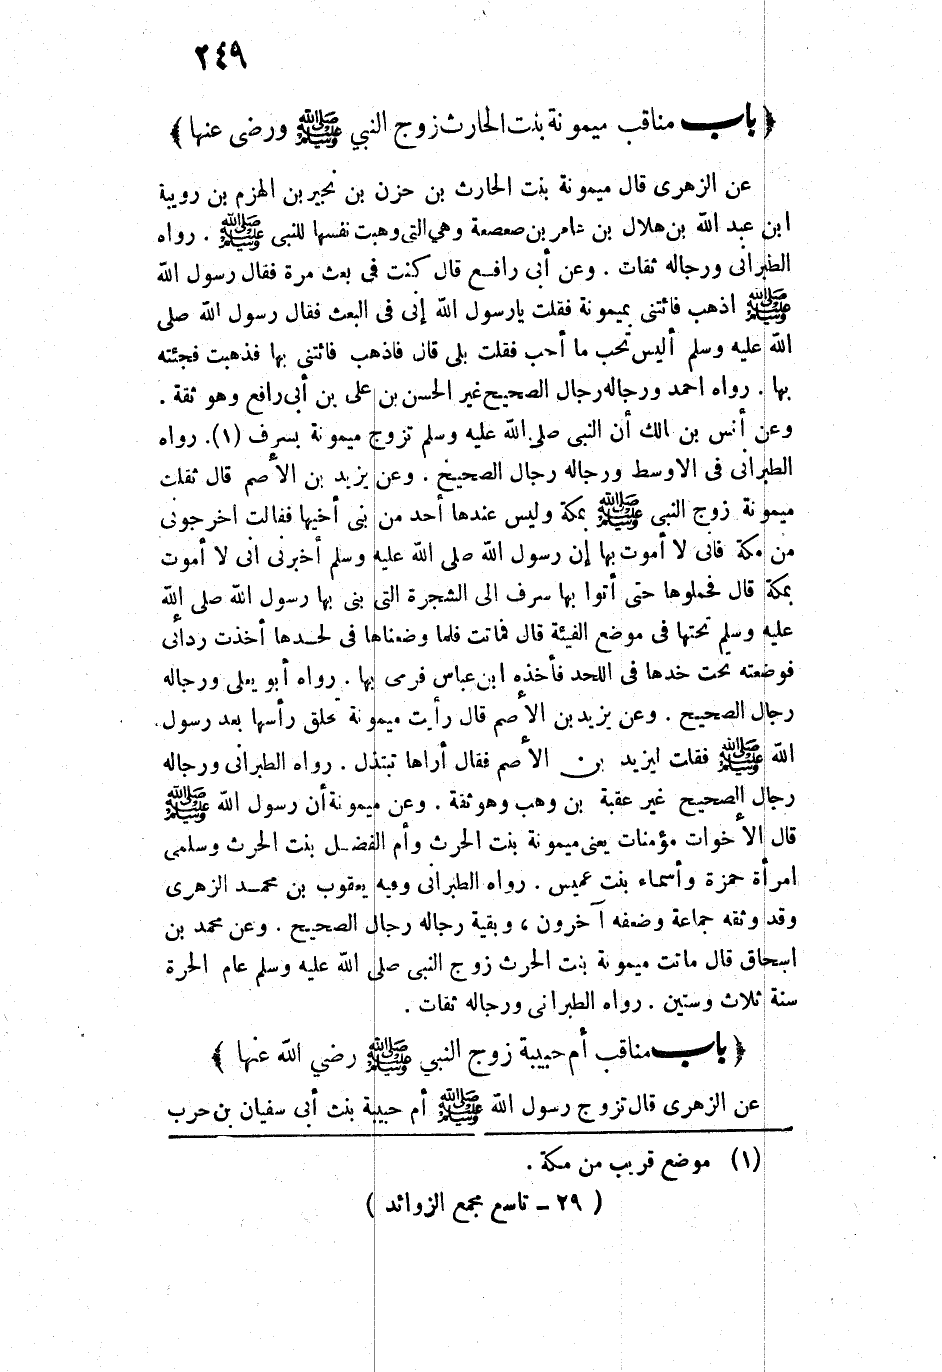 ٢٤٩
﴿ باب مناقب ميمونة بنت الحارث زوج النبي ﷺ ورضى عنها ﴾
عن الزهرى قال ميمونة بنت الحارث بن حزن بن بجير بن الهزم بن رويبة
ابن عبد الله بن هلال بن عامر بن صعصعة وهي التى وهبت نفسها للنبى ﷺ . رواه
الطبرانى ورجاله ثقات . وعن أبى رافع قال كنت فى بعث مرة فقال رسول الله
ﷺ اذهب فائتنى بميمونة فقلت يارسول الله إنى فى البعث فقال رسول الله صلى
الله عليه وسلم أليس تحب ما أحب فقلت بلى قال فاذهب فائتنى بها فذهبت فجئته
بها . رواه احمد ورجاله رجال الصحيح غير الحسن بن على بن أبى رافع وهو ثقة .
وعن أنس بن مالك أن النبى صلى الله عليه وسلم تزوج ميمونة بسرف (١). رواه
الطبرانى فى الاوسط ورجاله رجال الصحيح . وعن يزيد بن الأصم قال ثقلت
ميمونة زوج النبى ﷺ بمكة وليس عندها أحد من بنى أخيها فقالت اخرجونى
من مكة فانى لا أموت بها إن رسول الله صلى الله عليه وسلم أخبرنى انى لا أموت
بمكة قال فحملوها حتى أتوا بها سرف الى الشجرة التى بنى بها رسول الله صلى الله
عليه وسلم تحتها فى موضع الفيئة قال فماتت فلما وضعناها فى لحدها أخذت ردائى
فوضعته تحت خدها فى اللحد فأخذه ابن عباس فرمى بها . رواه أبو يعلى ورجاله
رجال الصحيح . وعن يزيد بن الأصم قال رأيت ميمونة تحلق رأسها بعد رسول
الله ﷺ فقلت ليزيد بن الأصم فقال أراها تبتذل . رواه الطبرانى ورجاله
رجال الصحيح غير عقبة بن وهب وهو ثقة . وعن ميمونة أن رسول الله ﷺ
قال الأخوات مؤمنات يعنى ميمونة بنت الحرث وأم الفضل بنت الحرث وسلمى
امرأة حمزة وأسماء بنت عميس . رواه الطبرانى وفيه يعقوب بن محمد الزهرى
وقد وثقه جماعة وضعفه آخرون ، وبقية رجاله رجال الصحيح . وعن محمد بن
اسحاق قال ماتت ميمونة بنت الحرث زوج النبى صلى الله عليه وسلم عام الحرة
سنة ثلاث وستين . رواه الطبرانى ورجاله ثقات .
﴿ باب مناقب أم حبيبة زوج النبي ﷺ رضي الله عنها ﴾
عن الزهرى قال تزوج رسول الله ﷺ أم حبيبة بنت أبى سفيان بن حرب
(١) موضع قريب من مكة .
( ٢٩ - تاسع مجمع الزوائد )